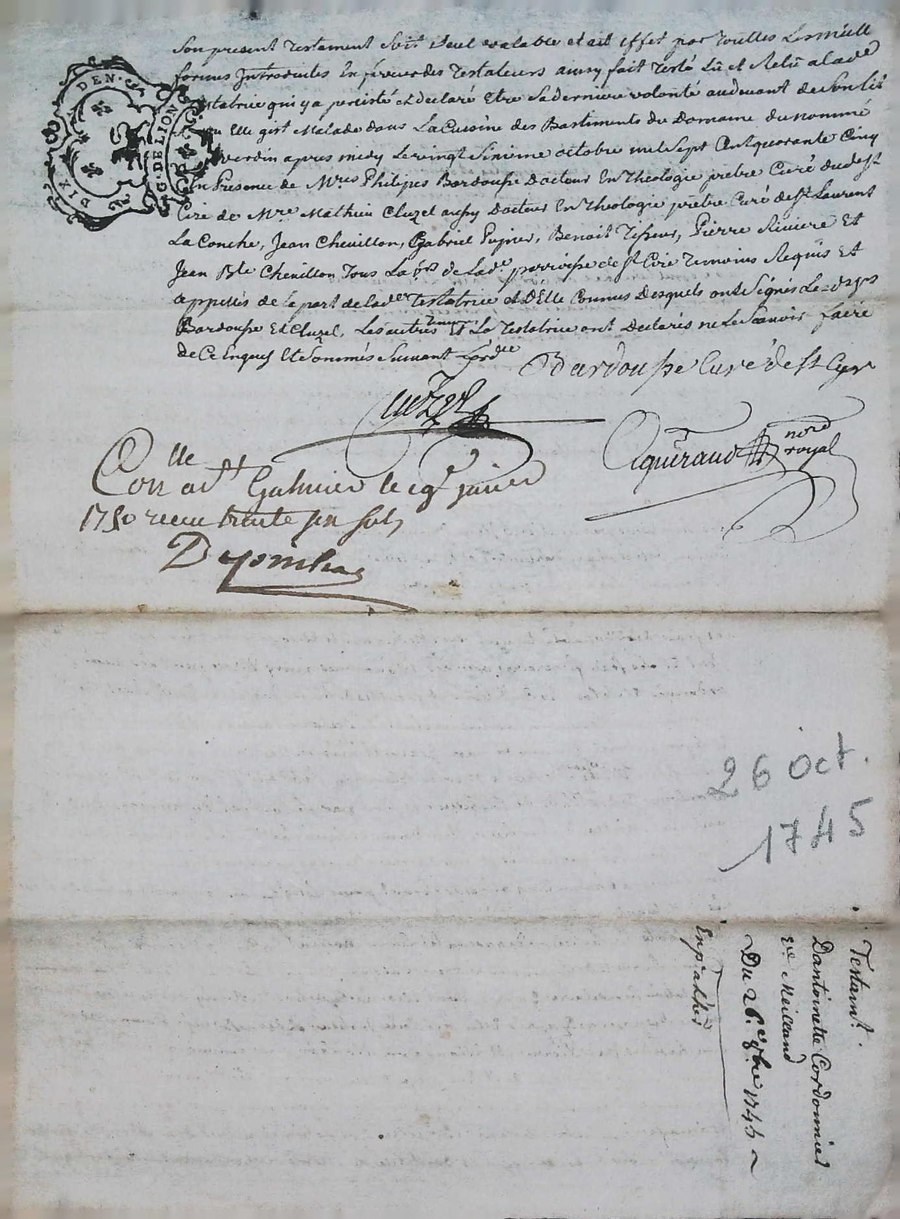 DIX DEN.
G. DE LION
Son present Testament Soit Seul valable et ait effet par touttes Les meill
formes Introduites En faveur des Testateurs aussy fait Testé Lû et Relû a lade
Testatrice qui y a persisté et declaré Etre Sa derniere volonté au devant de Son lit
ou Elle gist Malade dans La Cuisine des Bastiments du Domaine du nommé
verdin apres midy Le vingt Sixieme octobre mil Sept Cent quarante Cinq
En Presence de Mres Philipes Bardousse Docteur En Theologie prebtre Curé dudt St
Cire de Mre Mathieu Cluzel aussy Docteur En Theologie prebtre Curé de St Laurent
La Conche, Jean Chevillon, Gabriel Pupier, Benoit Tisseur, Pierre Riviere Et
Jean Bte Chevillon Tous de lade parroisse de St Cire Temoins Requis Et
appellés de la part de lade Testatrice et d'Elle Connus Desquels ont Signés
Bardousse Et Cluzel, Les autres Temoins Et La Testatrice ont Declarés ne Le Scavoir faire
de Ce Enquis Et Sommés Suivant Lordce
Bardousse Curé de St Cyr
Cluzel
Aguiraud nore royal
Conlle at Galmier le janvier
1750 recu trente un sols
26 oct.
1745
Testamt.
Dantoinette Cordonnier
ve Meilland
Du 26e 8bre 1745